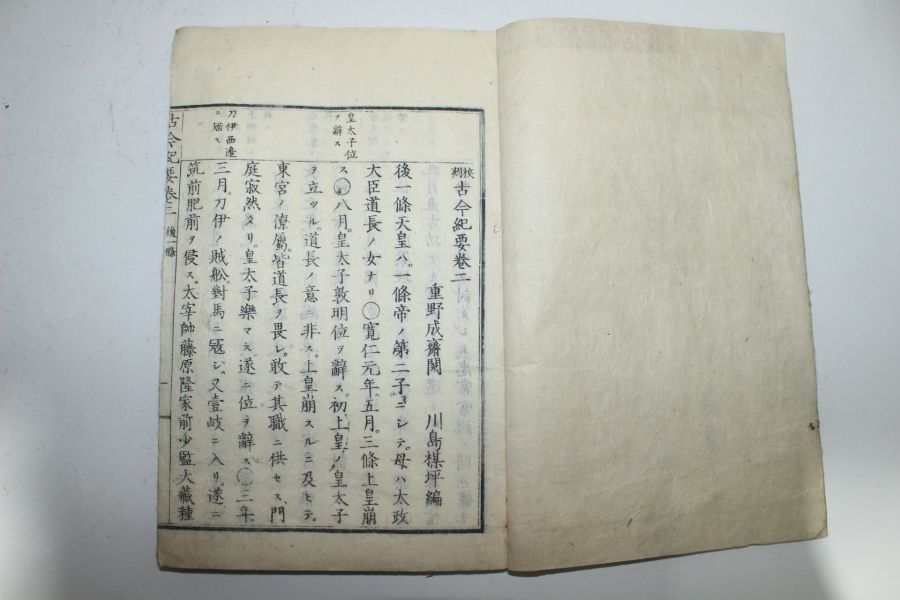 校刻 古今紀要卷二
重野成齋閱 川島楳坪編
後一條天皇ハ。一條帝ノ第二子ニシテ。母ハ太政
大臣道長ノ女ナリ〇寛仁元年。五月。三條上皇崩
ス〇八月。皇太子敦明位ヲ辭ス。初上皇ノ。皇太子
ヲ立ツル。道長ノ意ニ非ス。上皇崩スルニ及ヒテ。
東宮ノ僚屬。皆道長ヲ畏レ。敢テ其職ニ供セス。門
庭寂然タリ。皇太子樂マス。遂ニ位ヲ辭ス〇三年。
三月。刀伊ノ賊船。對馬ニ冦シ。又壹岐ニ入リ。遂ニ
筑前肥前ヲ侵ス。太宰帥藤原隆家前少監大藏種
皇太子位
ヲ辭ス
刀伊西邊
ニ冦ス
古今紀要卷二 後一條